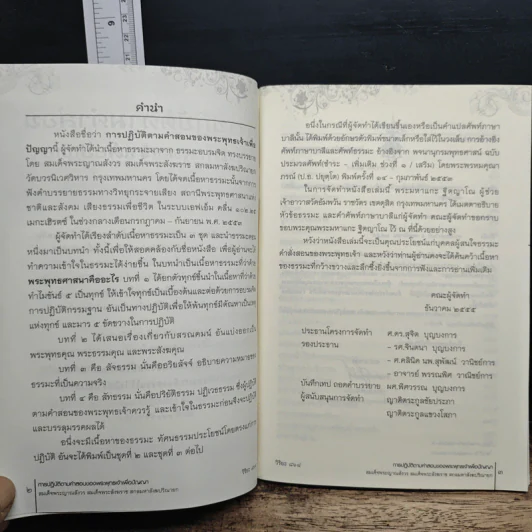 คำนำ
หนังสือชื่อว่า การปฏิบัติตามคำสอนของพระพุทธเจ้าเพื่อ
ปัญญานี้ ผู้จัดทำได้นำเนื้อหาธรรมะมาจาก ธรรมะอบรมจิต ทางบรรยาย
โดย สมเด็จพระญาณสังวร สมเด็จพระสังฆราช สกลมหาสังฆปริณายก
วัดบวรนิเวศวิหาร กรุงเทพมหานคร โดยได้จดเนื้อหาธรรมะนั้นจากการ
ฟังคำบรรยายธรรมทางวิทยุกระจายเสียง สถานีพระพุทธศาสนาแห่ง
ชาติและสังคม เสียงธรรมเพื่อชีวิต ในระบบเอฟเอ็ม คลื่น
เมกะเฮิรตซ์ ในช่วงกลางเดือนกรกฎาคม - กันยายน พ.ศ. ๒๕๕๓
ผู้จัดทำได้เรียงลำดับเนื้อหาธรรมะเป็น ๓ ชุด และนำธรรมะ
หนึ่งมาเป็นบทนำ ทั้งนี้เพื่อให้สอดคล้องกับชื่อหนังสือ เพื่อผู้อ่านจะได้
ทำความเข้าใจในธรรมะได้ง่ายขึ้น ในบทนำเป็นเนื้อหาธรรมะที่ว่าด้วย
พระพุทธศาสนาคืออะไร บทที่ ๑ ได้ยกตัวทุกข์ขึ้นนำในเนื้อหาที่ว่าด้วย
ทำไมขันธ์ ๕ เป็นทุกข์ ให้เข้าใจทุกข์เป็นเบื้องต้นและต่อด้วยการอบรม
ในปฏิบัติกรรมฐาน อันเป็นทางปฏิบัติเพื่อให้พ้นทุกข์มีตัณหาเป็นเหตุ
แห่งทุกข์ และมาร ๕ ขัดขวางในการปฏิบัติ
บทที่ ๒ ได้เสนอเรื่องเกี่ยวกับสรณคมน์ อันแบ่งออกเป็น
พระพุทธคุณ พระธรรมคุณ และพระสังฆคุณ
บทที่ ๓ คือ สัจธรรม นั่นคืออริยสัจจ์ อธิบายความหมายของ
ธรรมะที่เป็นความจริง
บทที่ ๔ คือ สัทธรรม นั่นคือปริยัติธรรม ปฏิเวธธรรม ซึ่งผู้ปฏิบัติ
ตามคำสอนของพระพุทธเจ้าควรรู้ และเข้าใจในธรรมะก่อนจึงจะปฏิบัติ
และบรรลุมรรคผลได้
อนึ่งจะมีเนื้อหาของธรรมะ ทัศนธรรมประโยชน์โดยตรงแก่การ
ปฏิบัติ อันจะได้พิมพ์เป็นชุดที่ ๒ และชุดที่ ๓ ต่อไป
๒
การปฏิบัติตามคำสอนของพระพุทธเจ้าเพื่อปัญญา
สมเด็จพระญาณสังวร สมเด็จพระสังฆราช สกลมหาสังฆปริณายก
อนึ่งในกรณีที่ผู้จัดทำได้เขียนขึ้นเองหรือเป็นคำแปลศัพท์ภาษา
บาลีนั้น ได้พิมพ์ด้วยอักษรตัวพิมพ์ขนาดเล็กหรือใส่ไว้ในวงเล็บ การอ้างอิง
ศัพท์ภาษาบาลีและศัพท์ธรรมะ อ้างอิงจาก พจนานุกรมพุทธศาสน์ ฉบับ
ประมวลศัพท์ (ชำระ - เพิ่มเติม ช่วงที่ ๑ / เสริม) โดยพระพรหมคุณา
ภรณ์ (ป.อ. ปยุตฺโต) พิมพ์ครั้งที่ ๑๔ - กุมภาพันธ์ ๒๕๕๓
ในการจัดทำหนังสือเล่มนี้ พระมหาแกะ ฐิตญาโณ ผู้ช่วย
เจ้าอาวาสวัดอัมพวัน ราชวัตร เขตดุสิต กรุงเทพมหานคร ได้เมตตาอธิบาย
หัวข้อธรรมะ และคำศัพท์ภาษาบาลีแก่ผู้จัดทำ คณะผู้จัดทำขอกราบ
ขอบพระคุณพระมหาแกะ ฐิตญาโณ ไว้ ณ ที่นี้ด้วยอย่างสูง
หวังว่าหนังสือเล่มนี้จะเป็นคุณประโยชน์แก่บุคคลผู้สนใจธรรมะ
คำสั่งสอนของพระพุทธเจ้า และหวังว่าท่านผู้อ่านคงจะได้ค้นคว้าเนื้อหา
ของธรรมะที่กว้างขวางและลึกซึ้งยิ่งขึ้นจากการฟังและการอ่านเพิ่มเติม
คณะผู้จัดทำ
ธันวาคม ๒๕๕๔
ประธานโครงการจัดทำ ศ.ดร.สุจิต บุญบงการ
รองประธาน - รศ.จินตนา บุญบงการ
- ศ.คลินิค นพ.สุพัฒน์ วานิชย์การ
- อาจารย์ พรรณพิศ วานิชย์การ
บันทึกเทป ถอดคำบรรยาย ผศ.พิศวรรณ บุญบงการ
ผู้สนับสนุนการจัดทำ ญาติตระกูลชัยประภา
ญาติตระกูลแขวงโสภา
การปฏิบัติตามคำสอนของพระพุทธเจ้าเพื่อปัญญา
สมเด็จพระญาณสังวร สมเด็จพระสังฆราช สกลมหาสังฆปริณายก
๓